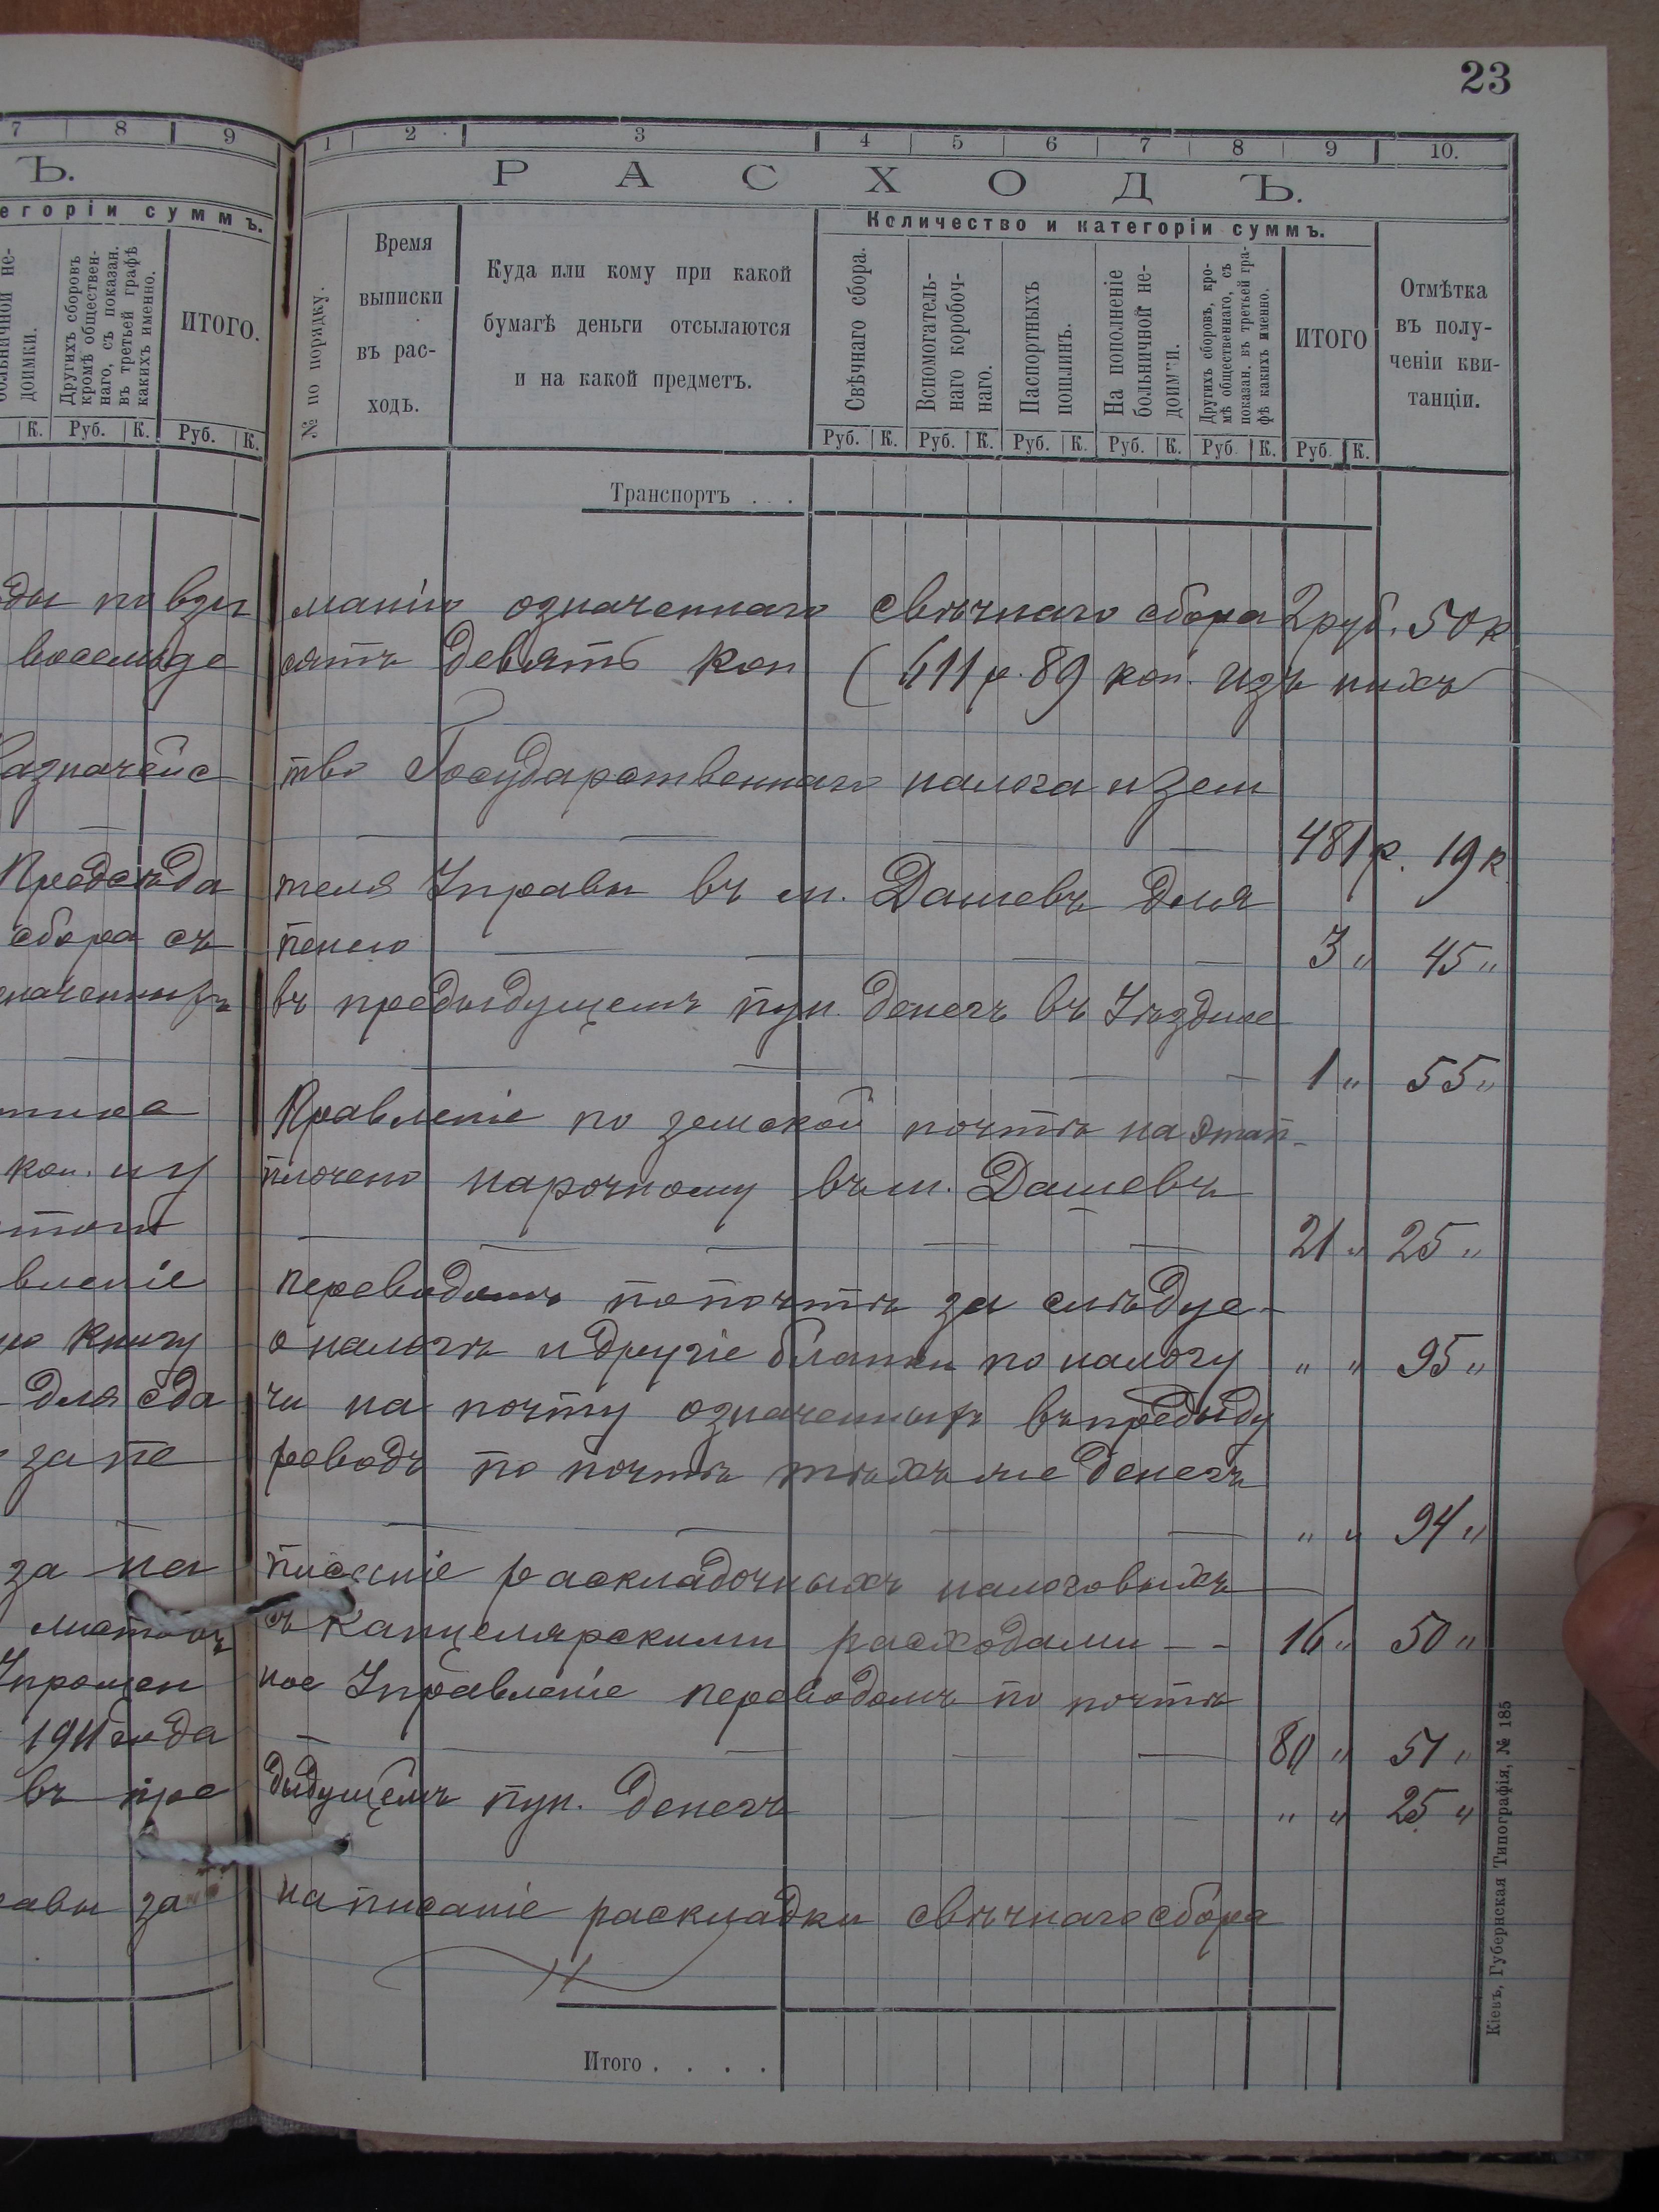 23
7 8 9
Ъ.
егоріи суммъ.
больничной не-
доимки.
Другихъ сборовъ
кромѣ обществен-
наго, съ показан.
въ третьей графѣ
какихъ именно.
ИТОГО.
К. Руб. К. Руб. К.
1 2 3 4 5 6 7 8 9 10.
РАСХОДЪ.
№ по порядку.
Время
выписки
въ рас-
ходъ.
Куда или кому при какой
бумагѣ деньги отсылаются
и на какой предметъ.
Количество и категоріи суммъ.
Свѣчнаго сбора.
Вспомогатель-
наго коробоч-
наго.
Паспортныхъ
пошлинъ.
На пополненіе
больничной не-
доимки.
Другихъ сборовъ, кро-
мѣ общественнаго, съ
показан. въ третьей гра-
фѣ какихъ именно.
ИТОГО
Отмѣтка
въ полу-
ченіи кви-
танціи.
Руб. К. Руб. К. Руб. К. Руб. К. Руб. К. Руб. К.
Транспортъ . . .
ды по взи манію означеннаго свѣчнаго сбора 2 руб. 50 к
восемьде сятъ девять коп ( 611 р. 89 коп. изъ нихъ
Казначейс тво Государственнаго налога и зем
— — — — — 481 р. 19 к.
Предсѣда теля Управы въ м. Дашевъ для
сбора съ пенею — — — — 3 „ 45 „
значенныхъ въ предыдущемъ пун. денегъ въ Уѣздное
— — — — — 1 „ 55 „
Правленіе по земской почтѣ на этап-
коп. и у плочено нарочному въ м. Дашевъ
— — — — — 21 „ 25 „
вленіе переводомъ по почтѣ за слѣдуе-
ю книгу о налогѣ и другіе бланки по налогу „ „ 95 „
для сда чи на почту означенныхъ въ предыду
за пе реводъ по почтѣ тѣхъ же денегъ
— — — — — „ „ 94 „
за на писаніе раскладочныхъ налоговыхъ —
листовъ съ канцелярскими расходами — - 16 „ 50 „
Упрощен ное Управленіе переводомъ по почтѣ
1911 года — — — — 80 „ 51 „
въ пре дыдущемъ пун. денегъ — — — „ „ 25 „
авы за написаніе раскладки свѣчнаго сбора
Итого . . . .
Кіевъ, Губернская Типографія, № 185